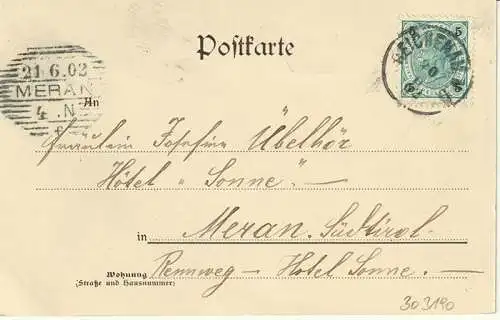 Postkarte
5
21.6.02
MERAN
4.N
An
Fräulein Josefine Übelhör
Hôtel „Sonne". —
in Meran. Südtirol.
Rennweg — Hotel Sonne. —
Wohnung
(Straße und Hausnummer)
303190